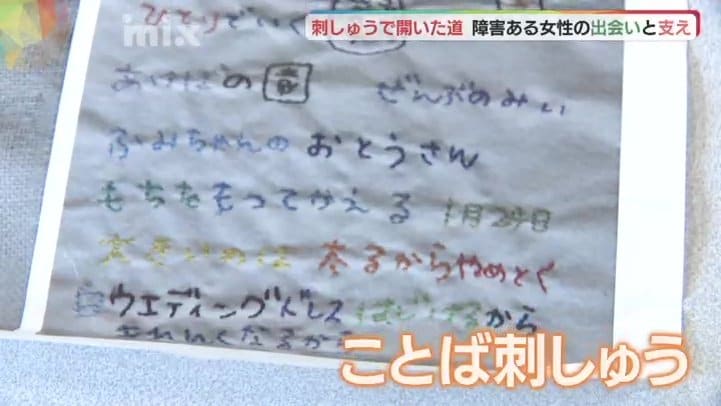 imix
刺しゅうで開いた道 障害ある女性の出会いと支え
ひとりでいく
あけぼの ぜんぶのみい
ふみちゃんの おとうさん
もちを もってかえる 1月29日
きるからやめとく
ウエディングドレス から
きれいくなるから
ことば刺しゅう